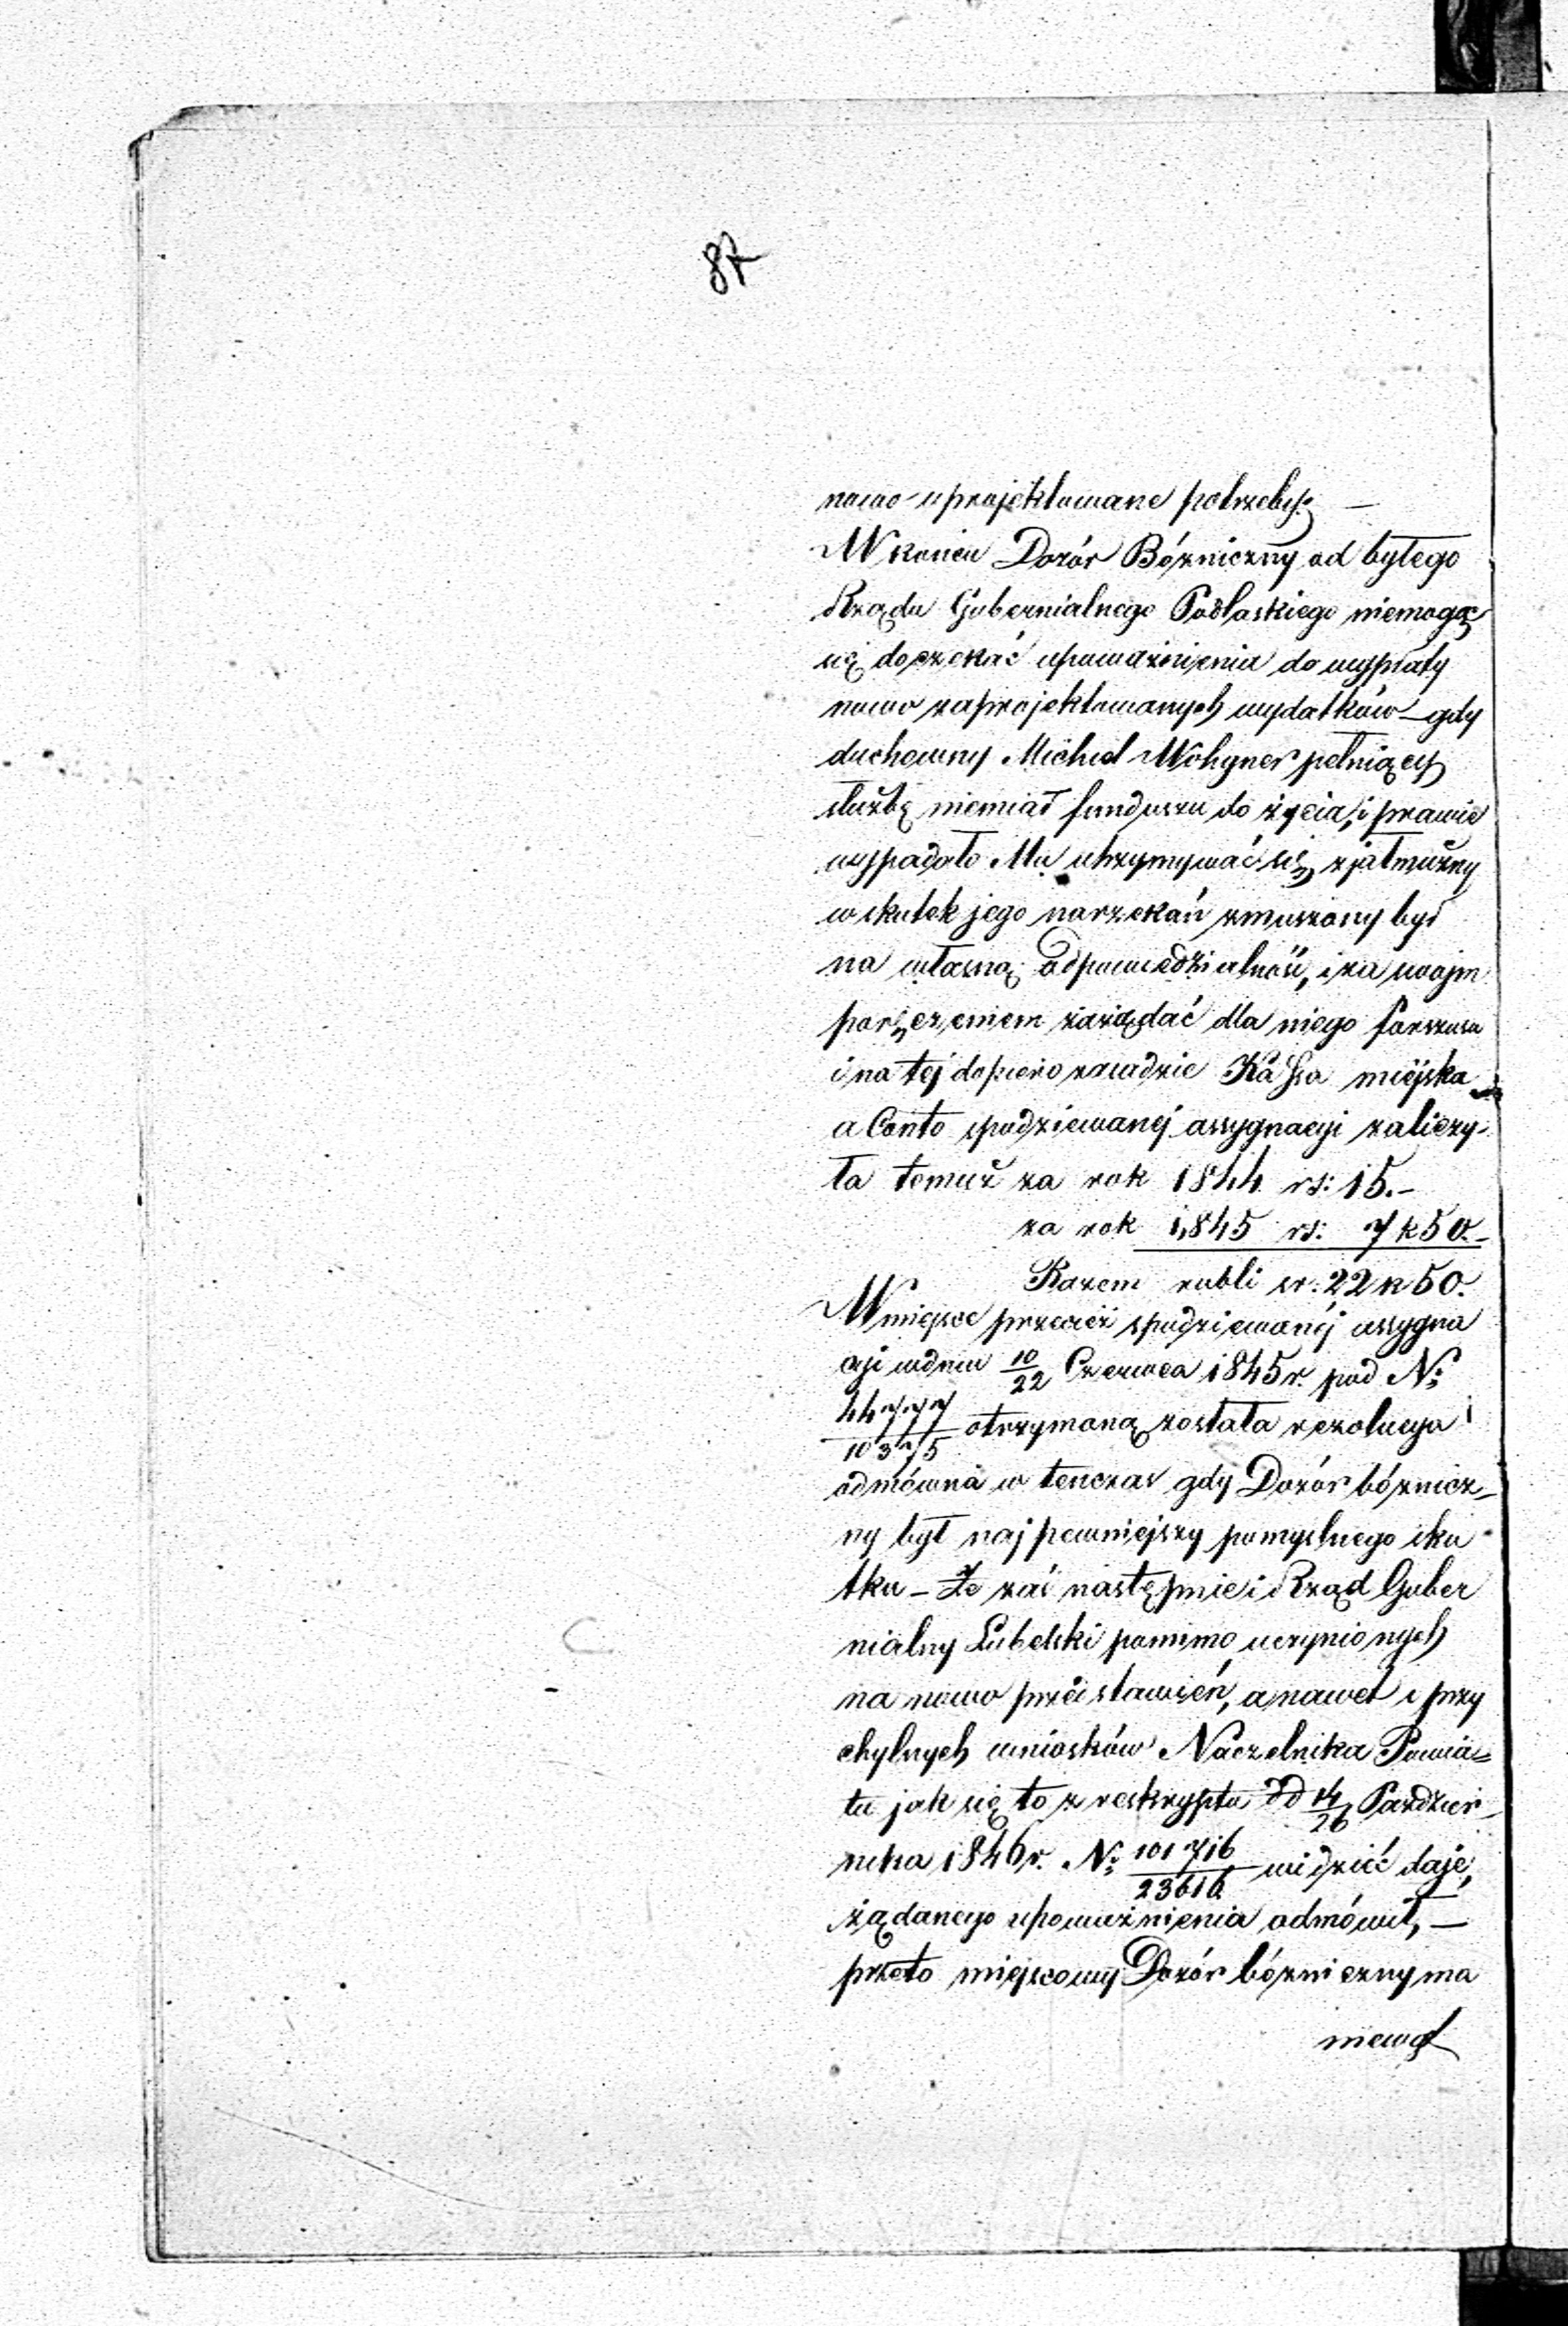 87
nowo uprojektowane potrzeby. —
W koncu Dozór Bózniczny od bytego
Rządu Gubernialnego Podlaskiego niemogąc
się doczekać upoważnienia do wypłaty
nowo zaprojektowanych wydatków – gdy
duchowny Michel Wohyner pełniący
służbę niemiał funduszu do życia, i prawie
wypadało Mu utrzymywać się z jałmużny
w skutek jego narzekań zmuszony był
na własną odpowiedzialność, i za swojm
poręczeniem zażądać dla niego forszusu
i na tej dopiero zasadzie Kassa miejska
a Conto spodziewanej assygnacyi zaliczy-
ła temuż za rok 1844 rs: 15.–
za rok 1,845 rs: 7 k 50.–
Razem rubli sr: 22 k 50.
W miejsce przecież spodziewanéj assygna
cyi wdniu 10/22 Czerwca 1845 r. pod N:
44777/10375 otrzymaną została rezolucya
odmówna w tenczas gdy Dozór bóznicz-
ny był najpewniejszy pomyslnego sku
tku – Że zaś następnie i Rząd Guber
nialny Lubelski pomimo uczynionych
na nowo przedstawień, a nawet i przy
chylnych wniosków Naczelnika Powia=
tu jak się to z reskryptu od 14/26 Pazdzier-
nika 1846 r. N: 101716/23616 widzieć daje,
żądanego upoważnienia odmówił, —
przeto miejscowy Dozór bózniczny ma
niewąt